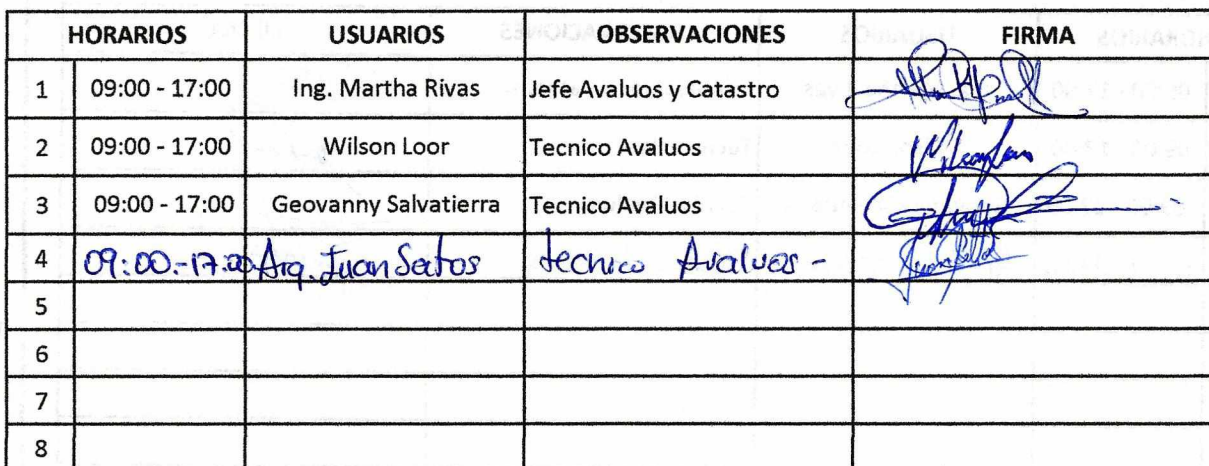 HORARIOS USUARIOS OBSERVACIONES FIRMA
1 09:00 - 17:00 Ing. Martha Rivas Jefe Avaluos y Catastro
2 09:00 - 17:00 Wilson Loor Tecnico Avaluos
3 09:00 - 17:00 Geovanny Salvatierra Tecnico Avaluos
4 09:00-17:00 Arq. Juan tecnico Avaluos -
5
6
7
8